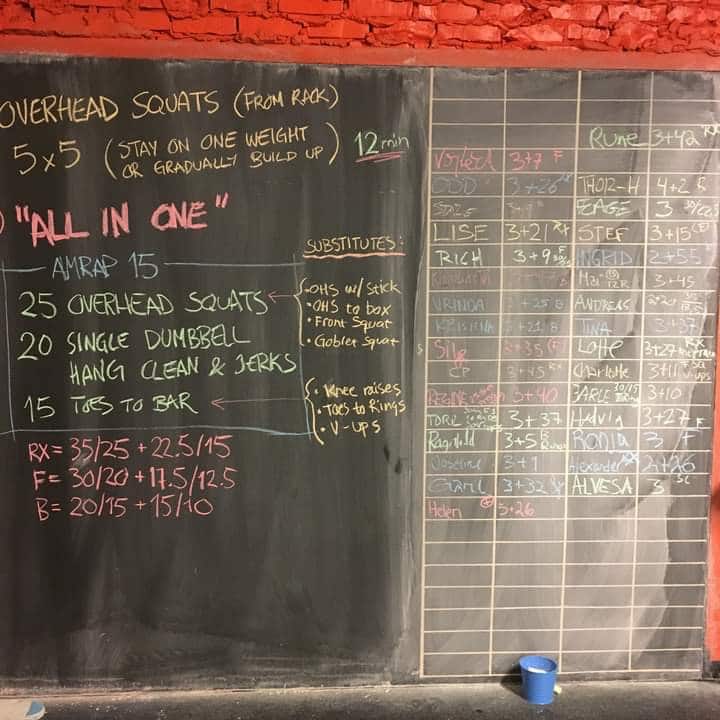 OVERHEAD SQUATS (FROM RACK)
5x5 (STAY ON ONE WEIGHT OR GRADUALLY BUILD UP) 12 min
"ALL IN ONE"
AMRAP 15
25 OVERHEAD SQUATS
20 SINGLE DUMBBELL
HANG CLEAN & JERKS
15 TOES TO BAR
RX = 35/25 + 22.5/15
F = 30/20 + 17.5/12.5
B = 20/15 + 15/10
SUBSTITUTES:
• OHS w/ Stick
• OHS to box
• Front Squat
• Goblet Squat
• Knee raises
• Toes to Rings
• V-ups
RUNE 3+42 RX
3+7 F
ODD 3+26 THOR-H 4+2 B
3
LISE 3+21 RX STEF 3+15
RICH 3+9 INGRID 2+55
3+45
VRINDA 3+25 B ANDREAS
KRISHNA 3+21 B TINA 3+37
3+35 Lotte 3+27 RX
CP 3+45 RX Charlotte 3+11 V-ups
3+40 JARLE 30/15 3+10
TORE 3+37 3+27 F
Ragnhild 3+5 B 3
Joseline 3+1 Alexander RX
3+32 ALVESA 3
Helen 3+26